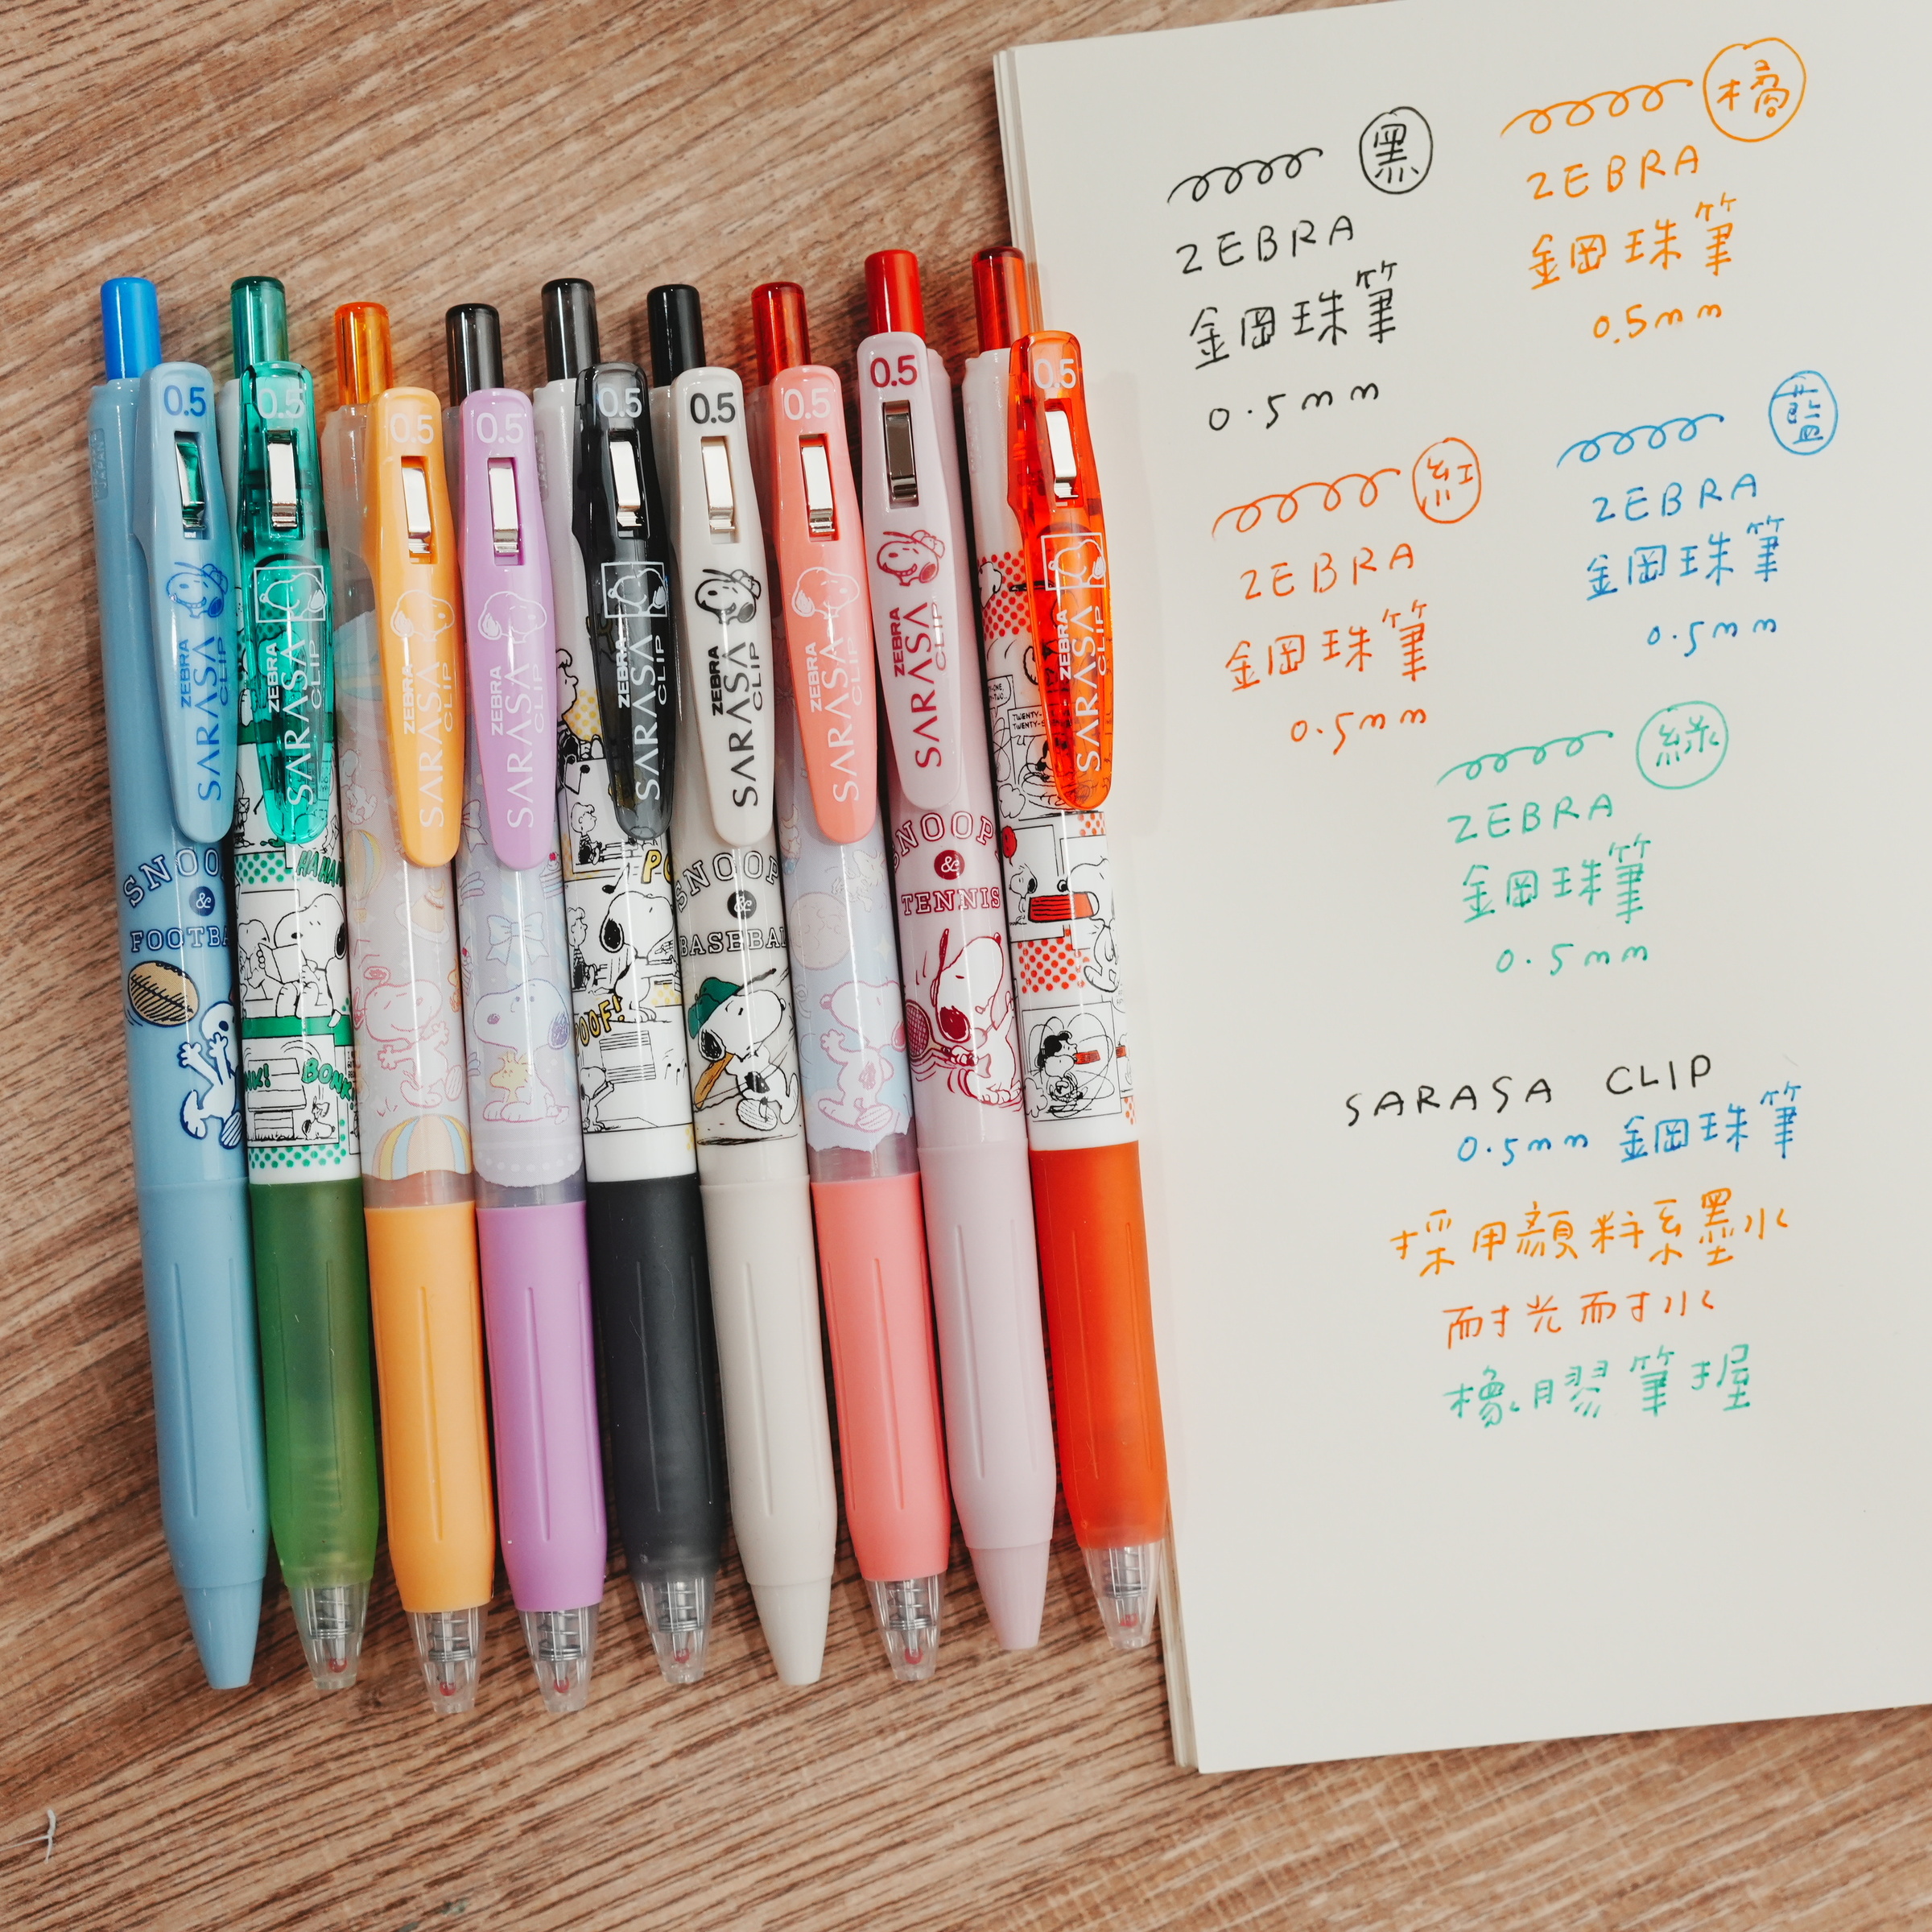 0.5
ZEBRA
SARASA
CLIP
&
0.5
ZEBRA
SARASA
CLIP
BONK!
0.5
ZEBRA
SARASA
CLIP
0.5
ZEBRA
SARASA
CLIP
0.5
ZEBRA
SARASA
CLIP
0.5
ZEBRA
SARASA
CLIP
&
0.5
ZEBRA
SARASA
CLIP
0.5
ZEBRA
SARASA
CLIP
&
TENNIS
0.5
ZEBRA
SARASA
CLIP
黑
ZEBRA
鋼珠筆
0.5mm
橘
ZEBRA
鋼珠筆
0.5mm
紅
ZEBRA
鋼珠筆
0.5mm
藍
ZEBRA
鋼珠筆
0.5mm
綠
ZEBRA
鋼珠筆
0.5mm
SARASA CLIP
0.5mm 鋼珠筆
採用顏料系墨水
耐光耐水
橡膠筆握